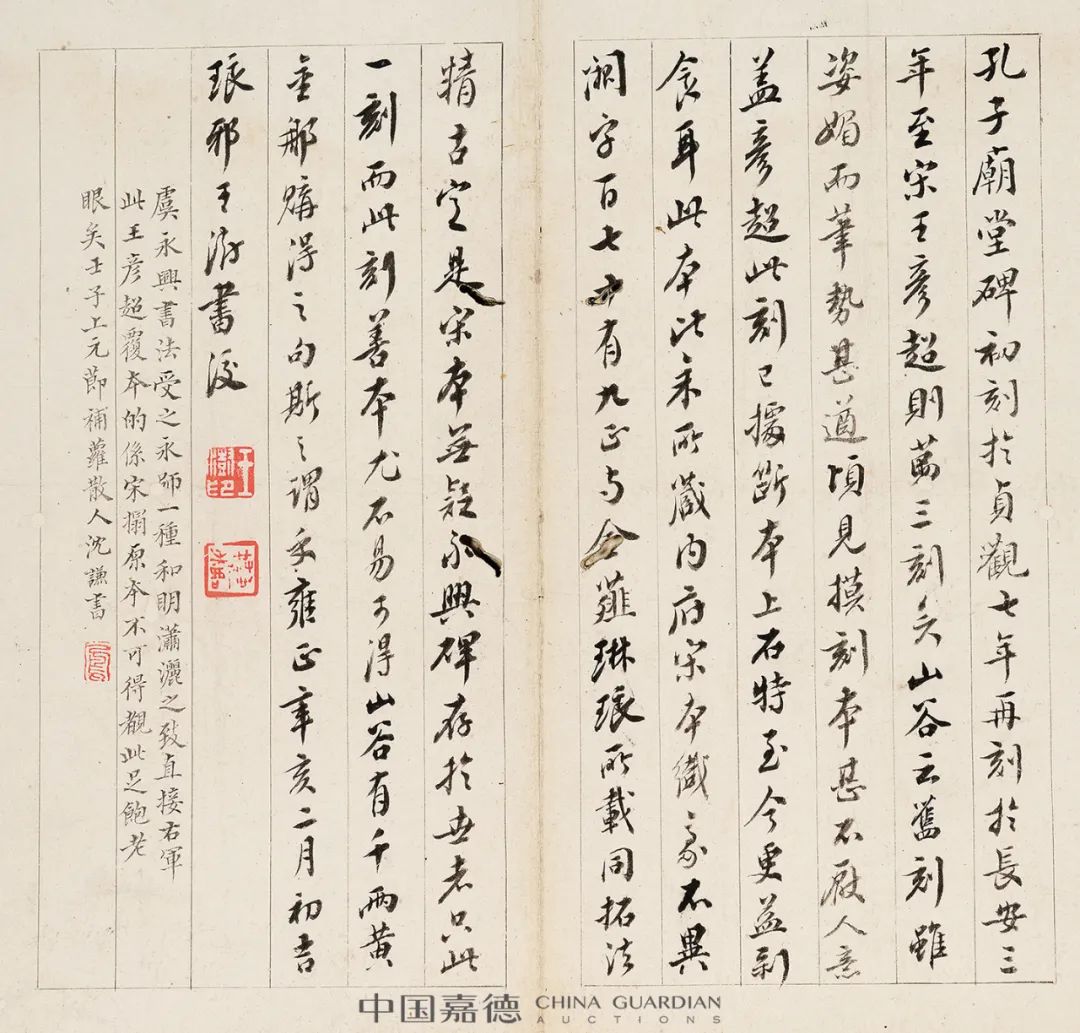 孔子廟堂碑初刻於貞觀七年再刻於長安三
年至宋王彥超則茑三刻矣山谷云舊刻雖
姿媚而筆勢甚遒頃見摸刻本甚不厭人意
蓋彥超此刻已據斷本上石特至今更益剝
食耳此本比朱所藏内府宋本纖豪不異
潤字百七十有九正与金薤琳琅所載同拓法
精古定是宋本無疑永興碑存於世者只此
一刻而此刻善本尤不易可得山谷有千兩黃
金那購得之句斯之謂乎雍正辛亥二月初吉
琅邪王澍書後
王澍印
虞永興書法受之永師一種和明瀟灑之致直接右軍
此王彥超覆本的係宋搨原本不可得觀此足飽老
眼矣壬子上元節補蘿散人沈謙書
中国嘉德 CHINA GUARDIAN
AUCTIONS